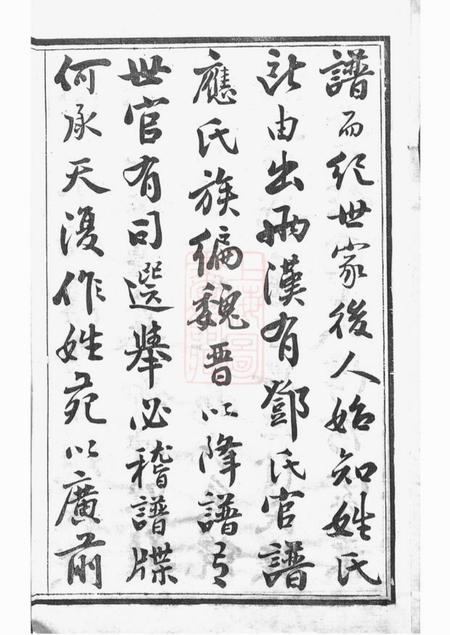 譜而紀世家後人始知姓氏
所由出兩漢有鄧氏官譜
應氏族編魏晋以降譜有
世官有司選舉必稽譜牒
何承天復作姓苑以廣前